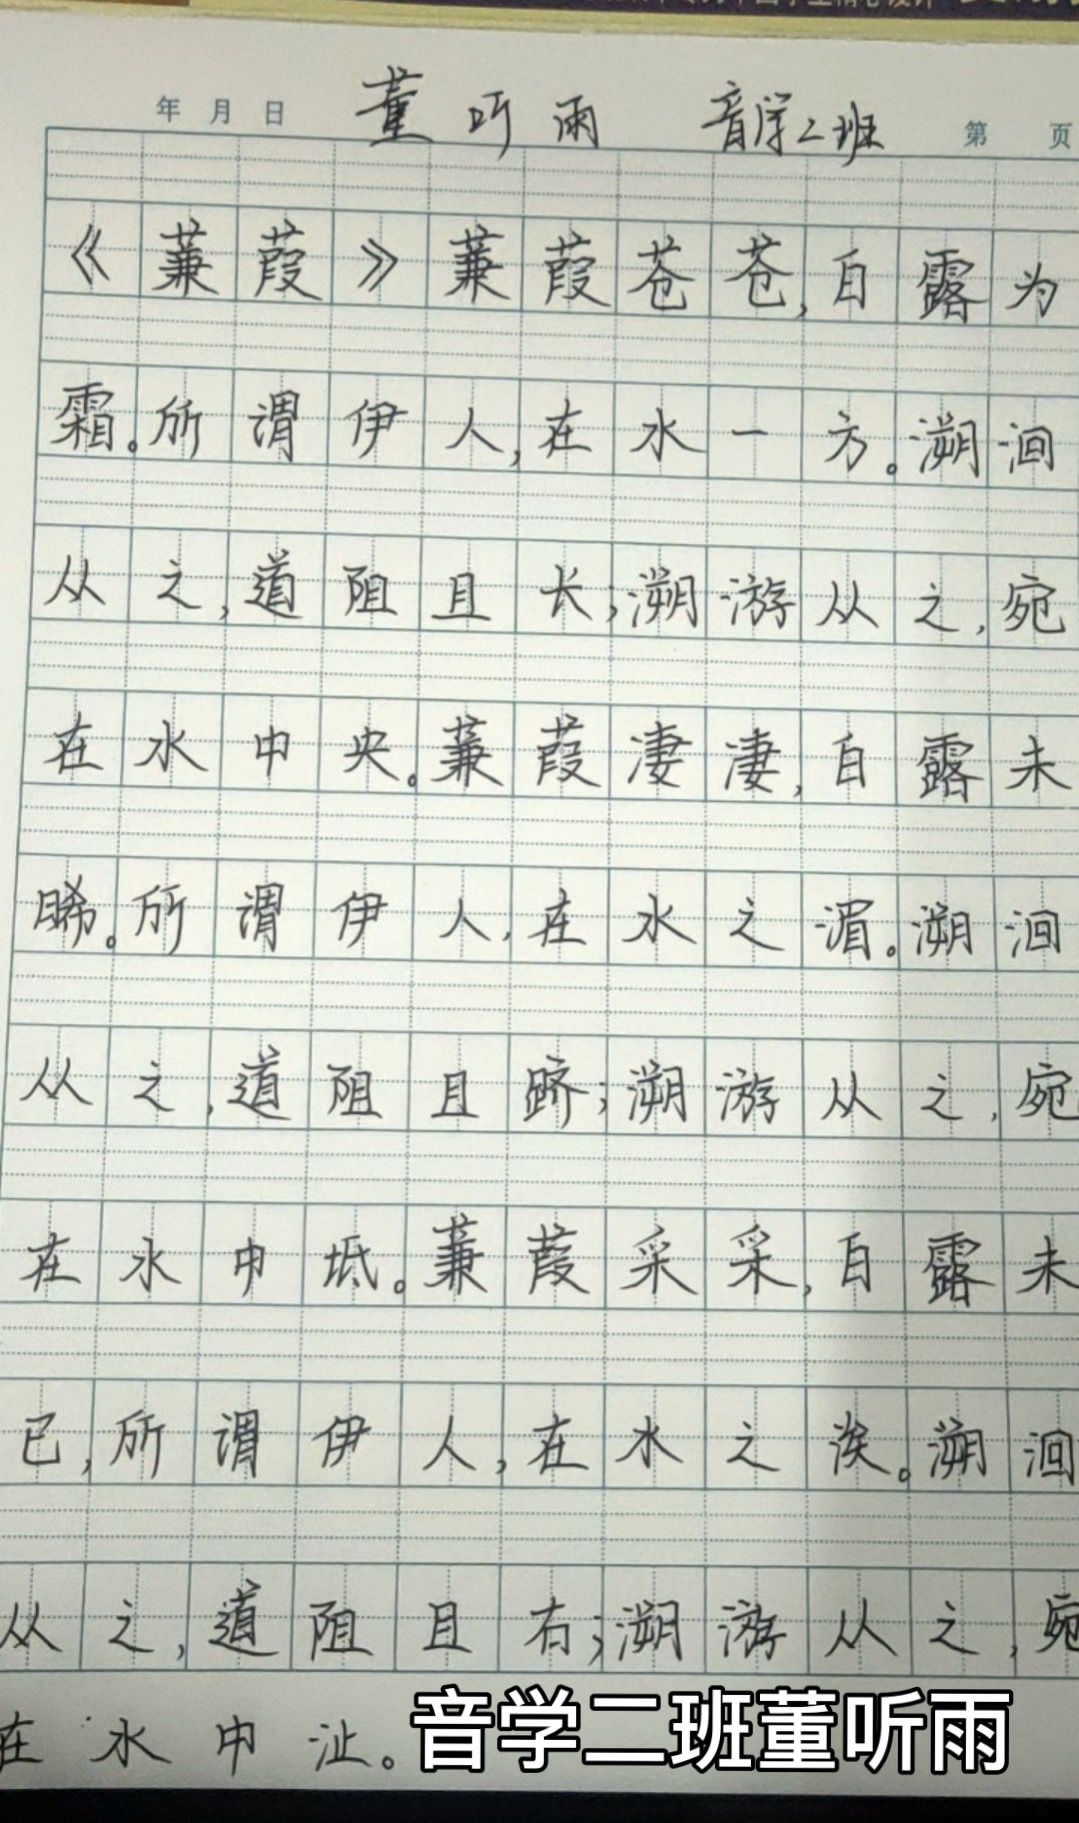 年 月 日 董听雨 音学二班 第 页
《蒹葭》蒹葭苍苍,白露为
霜。所谓伊人,在水一方。溯洄
从之,道阻且长;溯游从之,宛
在水中央。蒹葭凄凄,白露未
晞。所谓伊人,在水之湄。溯洄
从之,道阻且跻;溯游从之,宛
在水中坻。蒹葭采采,白露未
已,所谓伊人,在水之涘。溯洄
从之,道阻且右;溯游从之,宛
在水中沚。
音学二班董听雨